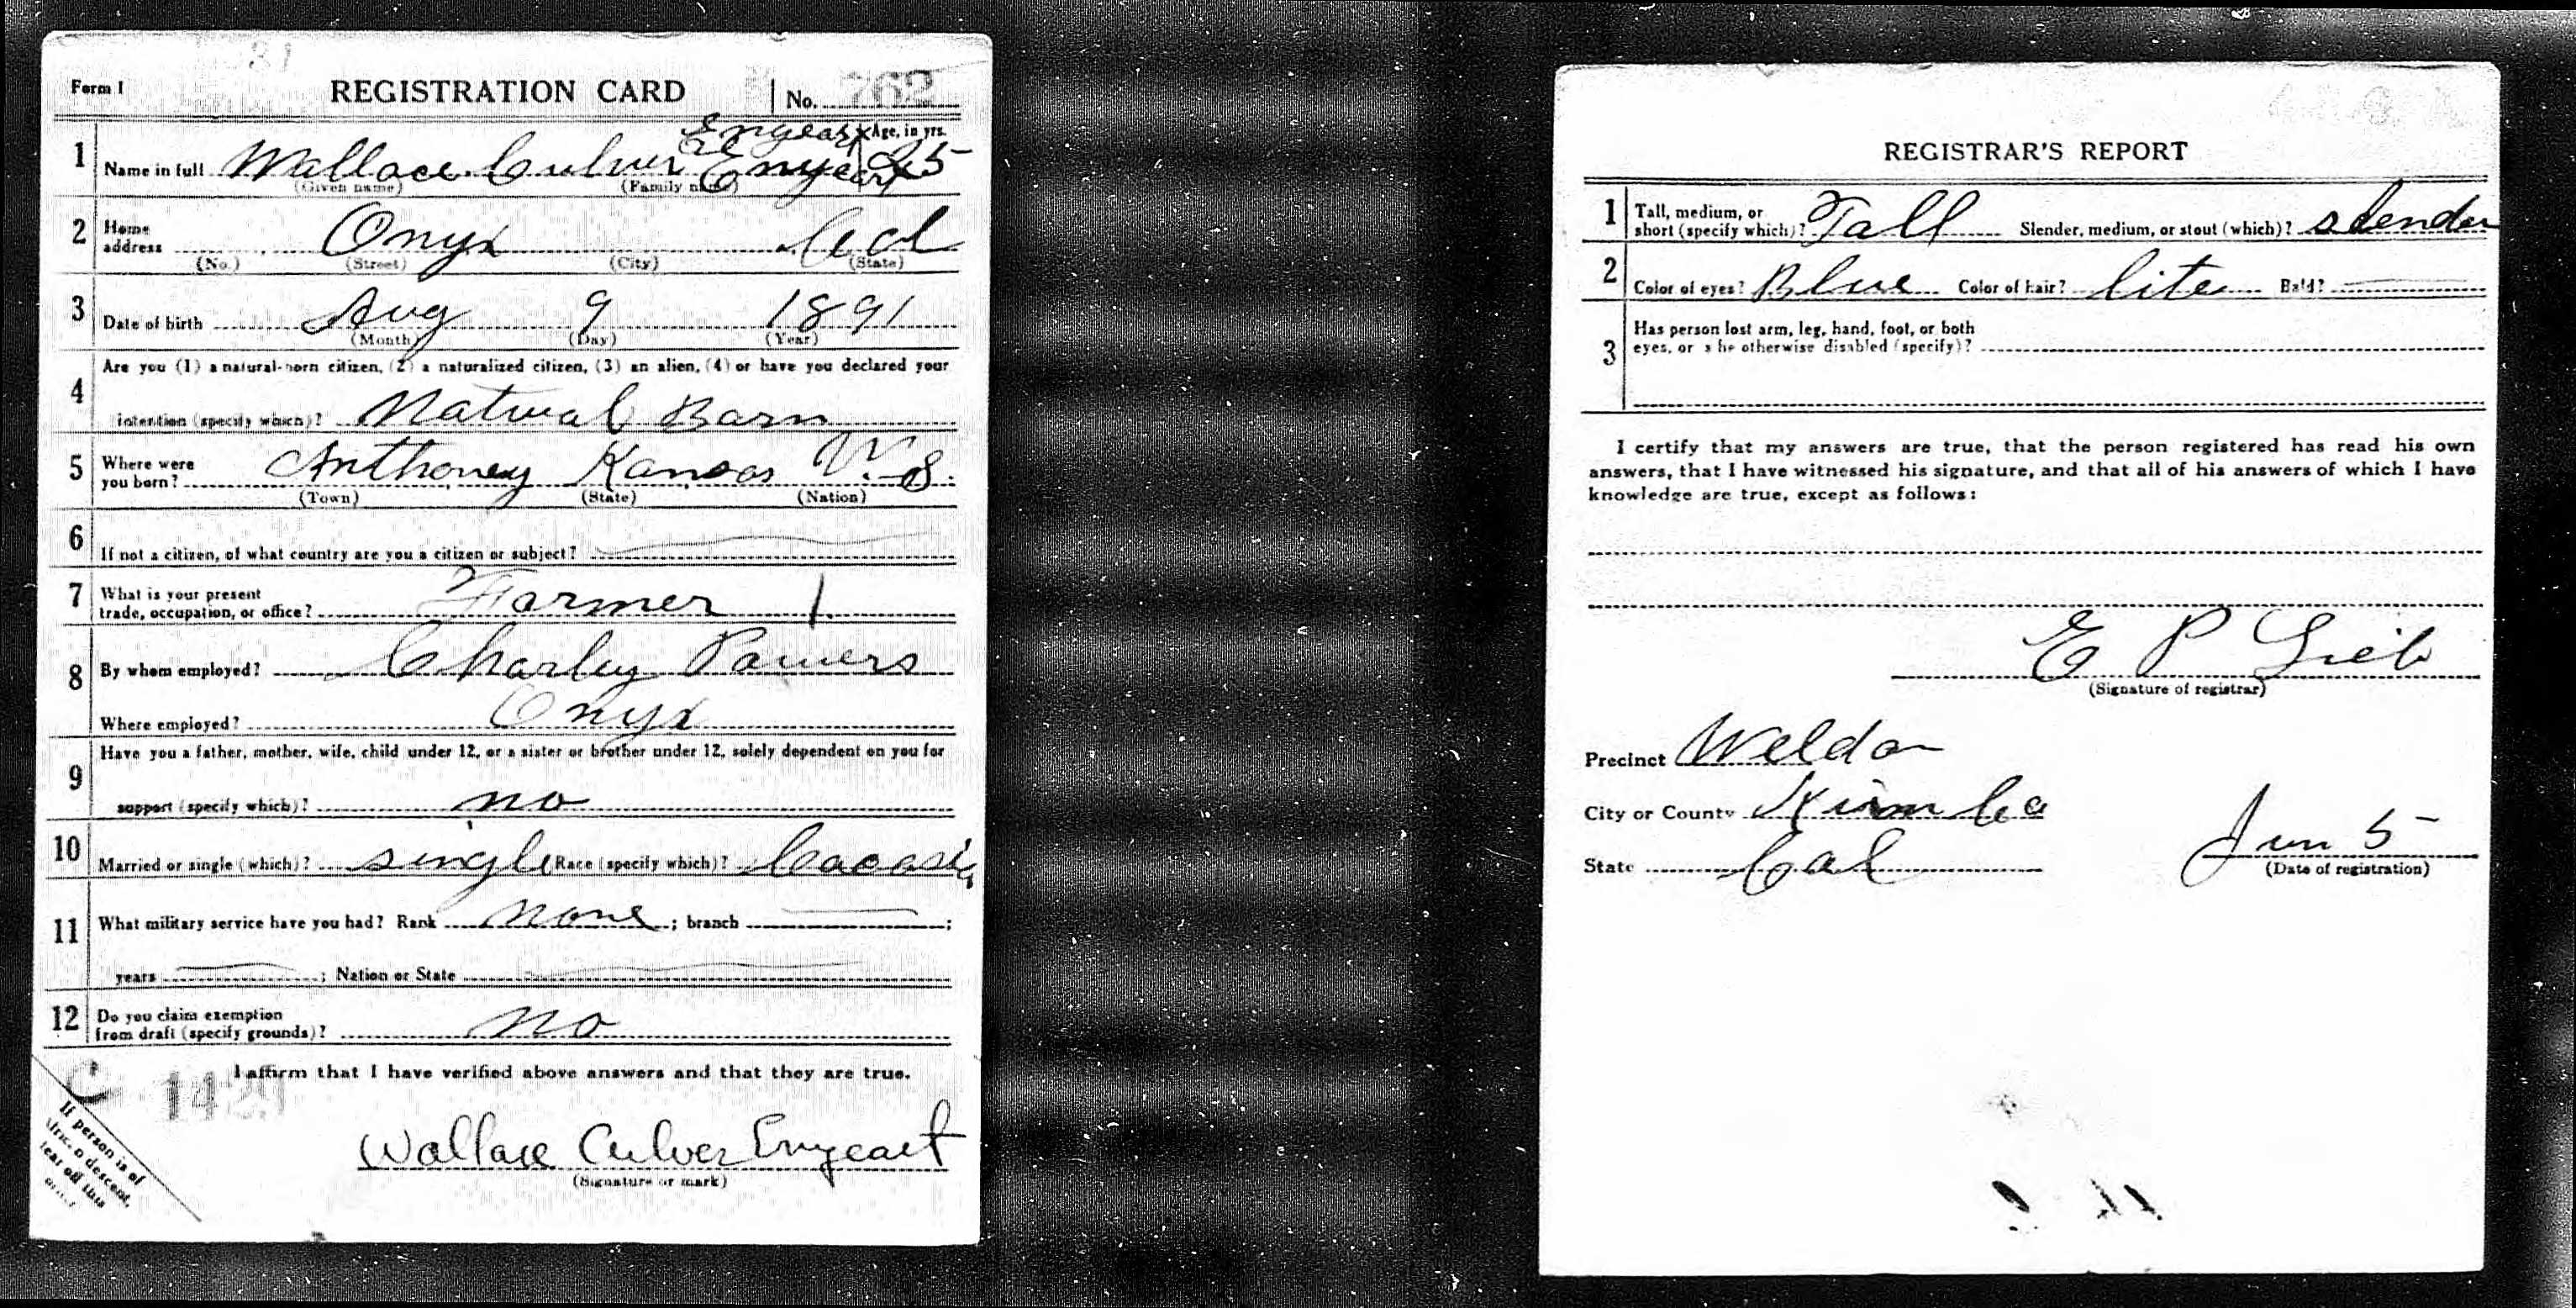 Form 1 REGISTRATION CARD No. 762
Enyeart Age, in yrs.
1 Name in full Wallace Culver Enyeart 25
(Given name) (Family name)
2 Home address Onyx Cal
(No.) (Street) (City) (State)
3 Date of birth Aug 9 1891
(Month) (Day) (Year)
4 Are you (1) a natural-born citizen, (2) a naturalized citizen, (3) an alien, (4) or have you declared your
intention (specify which)? Natural Born
5 Where were you born? Anthoney Kansas U.S.
(Town) (State) (Nation)
6 If not a citizen, of what country are you a citizen or subject?
7 What is your present trade, occupation, or office? Farmer 1
8 By whom employed? Charley Powers
Where employed? Onyx
9 Have you a father, mother, wife, child under 12, or a sister or brother under 12, solely dependent on you for
support (specify which)? no
10 Married or single (which)? single Race (specify which)? Cacasia
11 What military service have you had? Rank none ; branch ;
years ; Nation or State
12 Do you claim exemption from draft (specify grounds)? no
I affirm that I have verified above answers and that they are true.
C 142
Wallace Culver Enyeart
(Signature or mark)
If person is of
African descent,
tear off this
REGISTRAR'S REPORT
1 Tall, medium, or short (specify which)? Tall Slender, medium, or stout (which)? slender
2 Color of eyes? Blue Color of hair? lite Bald?
3 Has person lost arm, leg, hand, foot, or both
eyes, or is he otherwise disabled (specify)?
I certify that my answers are true, that the person registered has read his own
answers, that I have witnessed his signature, and that all of his answers of which I have
knowledge are true, except as follows:
E P Lieb
(Signature of registrar)
Precinct Weldon
City or County Kirn Co
State Cal Jun 5
(Date of registration)